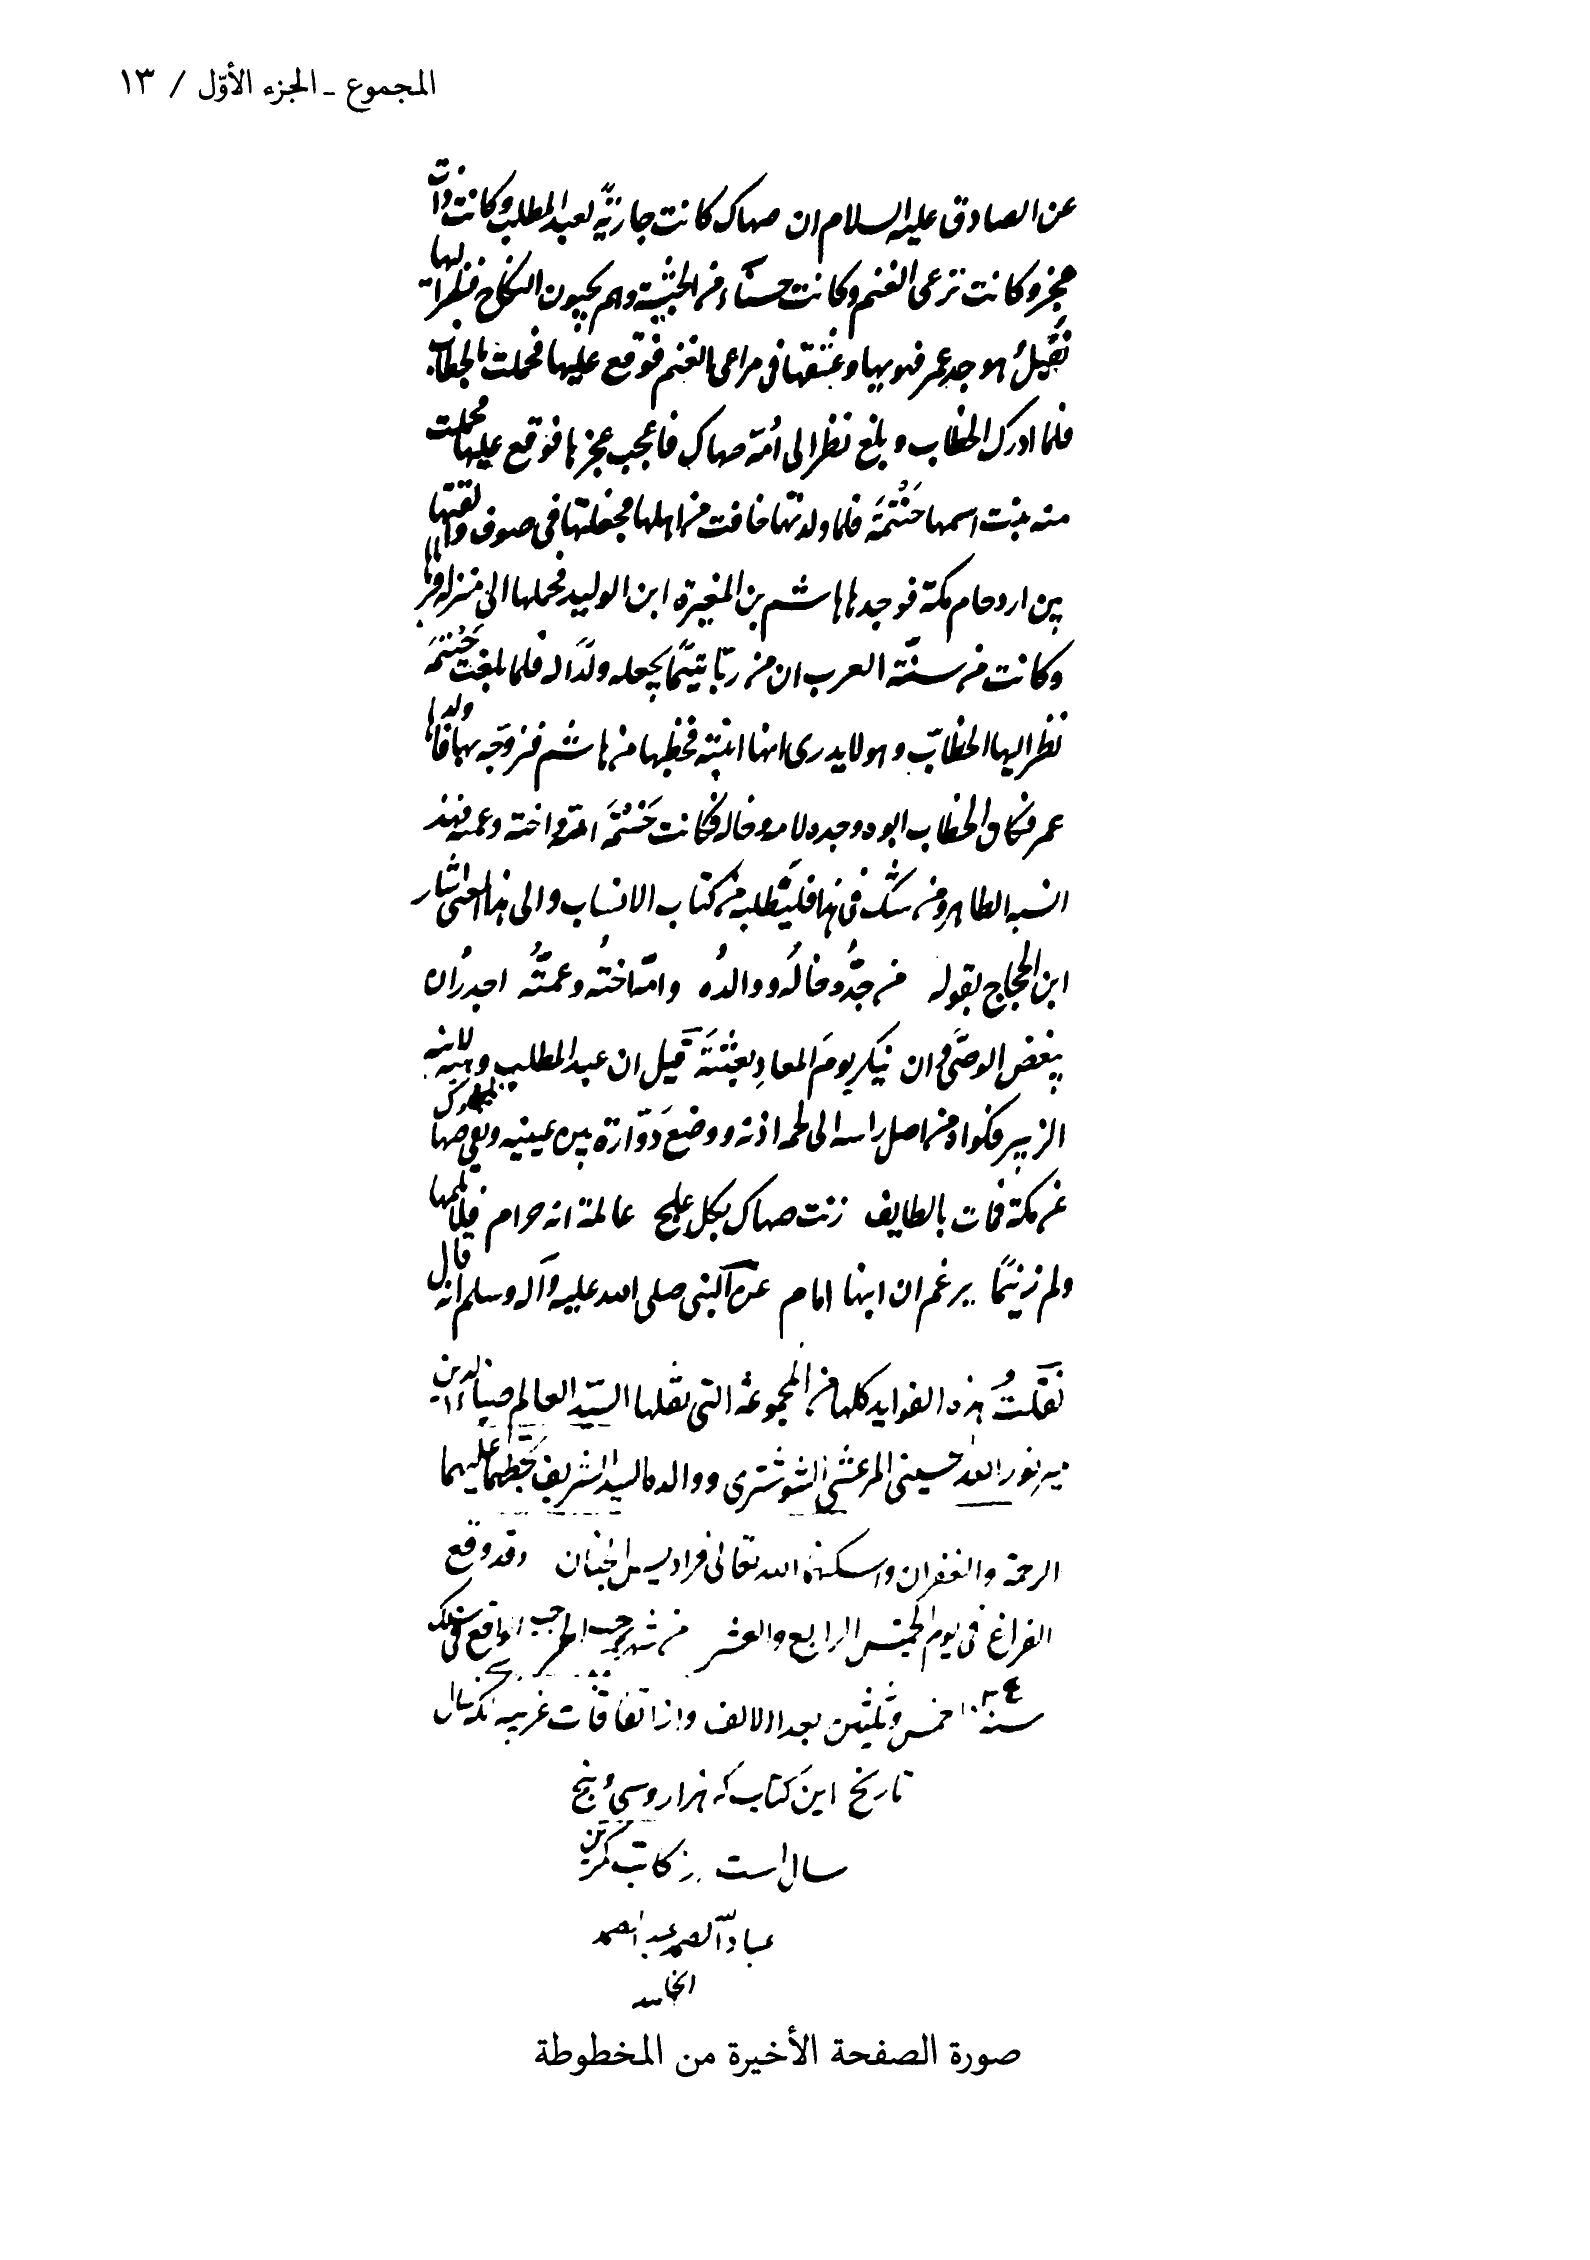 المجموع ـ الجزء الأوّل / ١٣
عن الصادق عليه السلام ان صهاك كانت جارية لعبد المطلب وكانت ذات
عجز وكانت ترعى الغنم وكانت حسناء من الحبشة وهم يحبون النكاح فنظر اليها
نُفَيلُ هو جد عمر فهويها وعشقها في مراعى الغنم فوقع عليها فحملت بالخطاب
فلما ادرك الخطاب وبلغ نظر الى أمّه صهاك فاعجب عجزها فوقع عليها فحملت
منه بنت اسمها حَنْتُمَة فلما ولدتها خافت من اهلها فجعلتها في صوف والقتها
بين ارحام مكة فوجدها هاشم بن المغيرة ابن الوليد فحملها الى منزله
وكانت من سنّة العرب ان من ربّا يتيمًا يجعله ولدًا له فلما بلغت حَنْتمَة
نظر اليها الخطاب وهو لا يدرى انها ابنته فخطبها من هاشم فزوّجه بها
عمر فكان الخطاب ابوه وجده لامه وخاله فكانت حَنْتُمَة امّه واخته وعمته فهذا
النسب الطاهر ومن شك في هذا فليطلبه من كتاب الانساب والى هذا المعنى اشار
ابن الحجاج بقوله من جدُّه خالُه ووالدُه وامّه اختُه وعمّتُه اجدرُ ان
يبغض الوصَّى وان ينكر يومَ المعادِ بعثتَه قيل ان عبد المطلب وابنه
الزبير من اصل راسه الى لحمه اذنه ووضع دوّارة بين عينيه ونفى صهاك
عن مكة فمات بالطايف زنت صهاك بكل علج عالمة انه حرام
ولم زنيمًا يرغم ان ابنها امام عن النبى صلى الله عليه وآله وسلم انه قال
نقلتُ هذه الفوايد كلها من المجموعة التى نقلها السيّد العالم ضياء الدين
نور الله حسينى المرعشى الشوشترى ووالده السيد الشريف بخطهما عليهما
الرحمة والغفران واسكنهما الله تعالى فراديس الجنان وقد وقع
الفراغ في يوم الخميس الرابع والعشر من شهر رجب المرجب الواقع في
سنة خمس وثلثين بعد الالف واز اتفاقات غريبه كه سال
تاريخ اين كتاب كه هزار وسى وپنج
سال است كاتب
عباد الله الصمد عبد الصمد
صورة الصفحة الأخيرة من المخطوطة